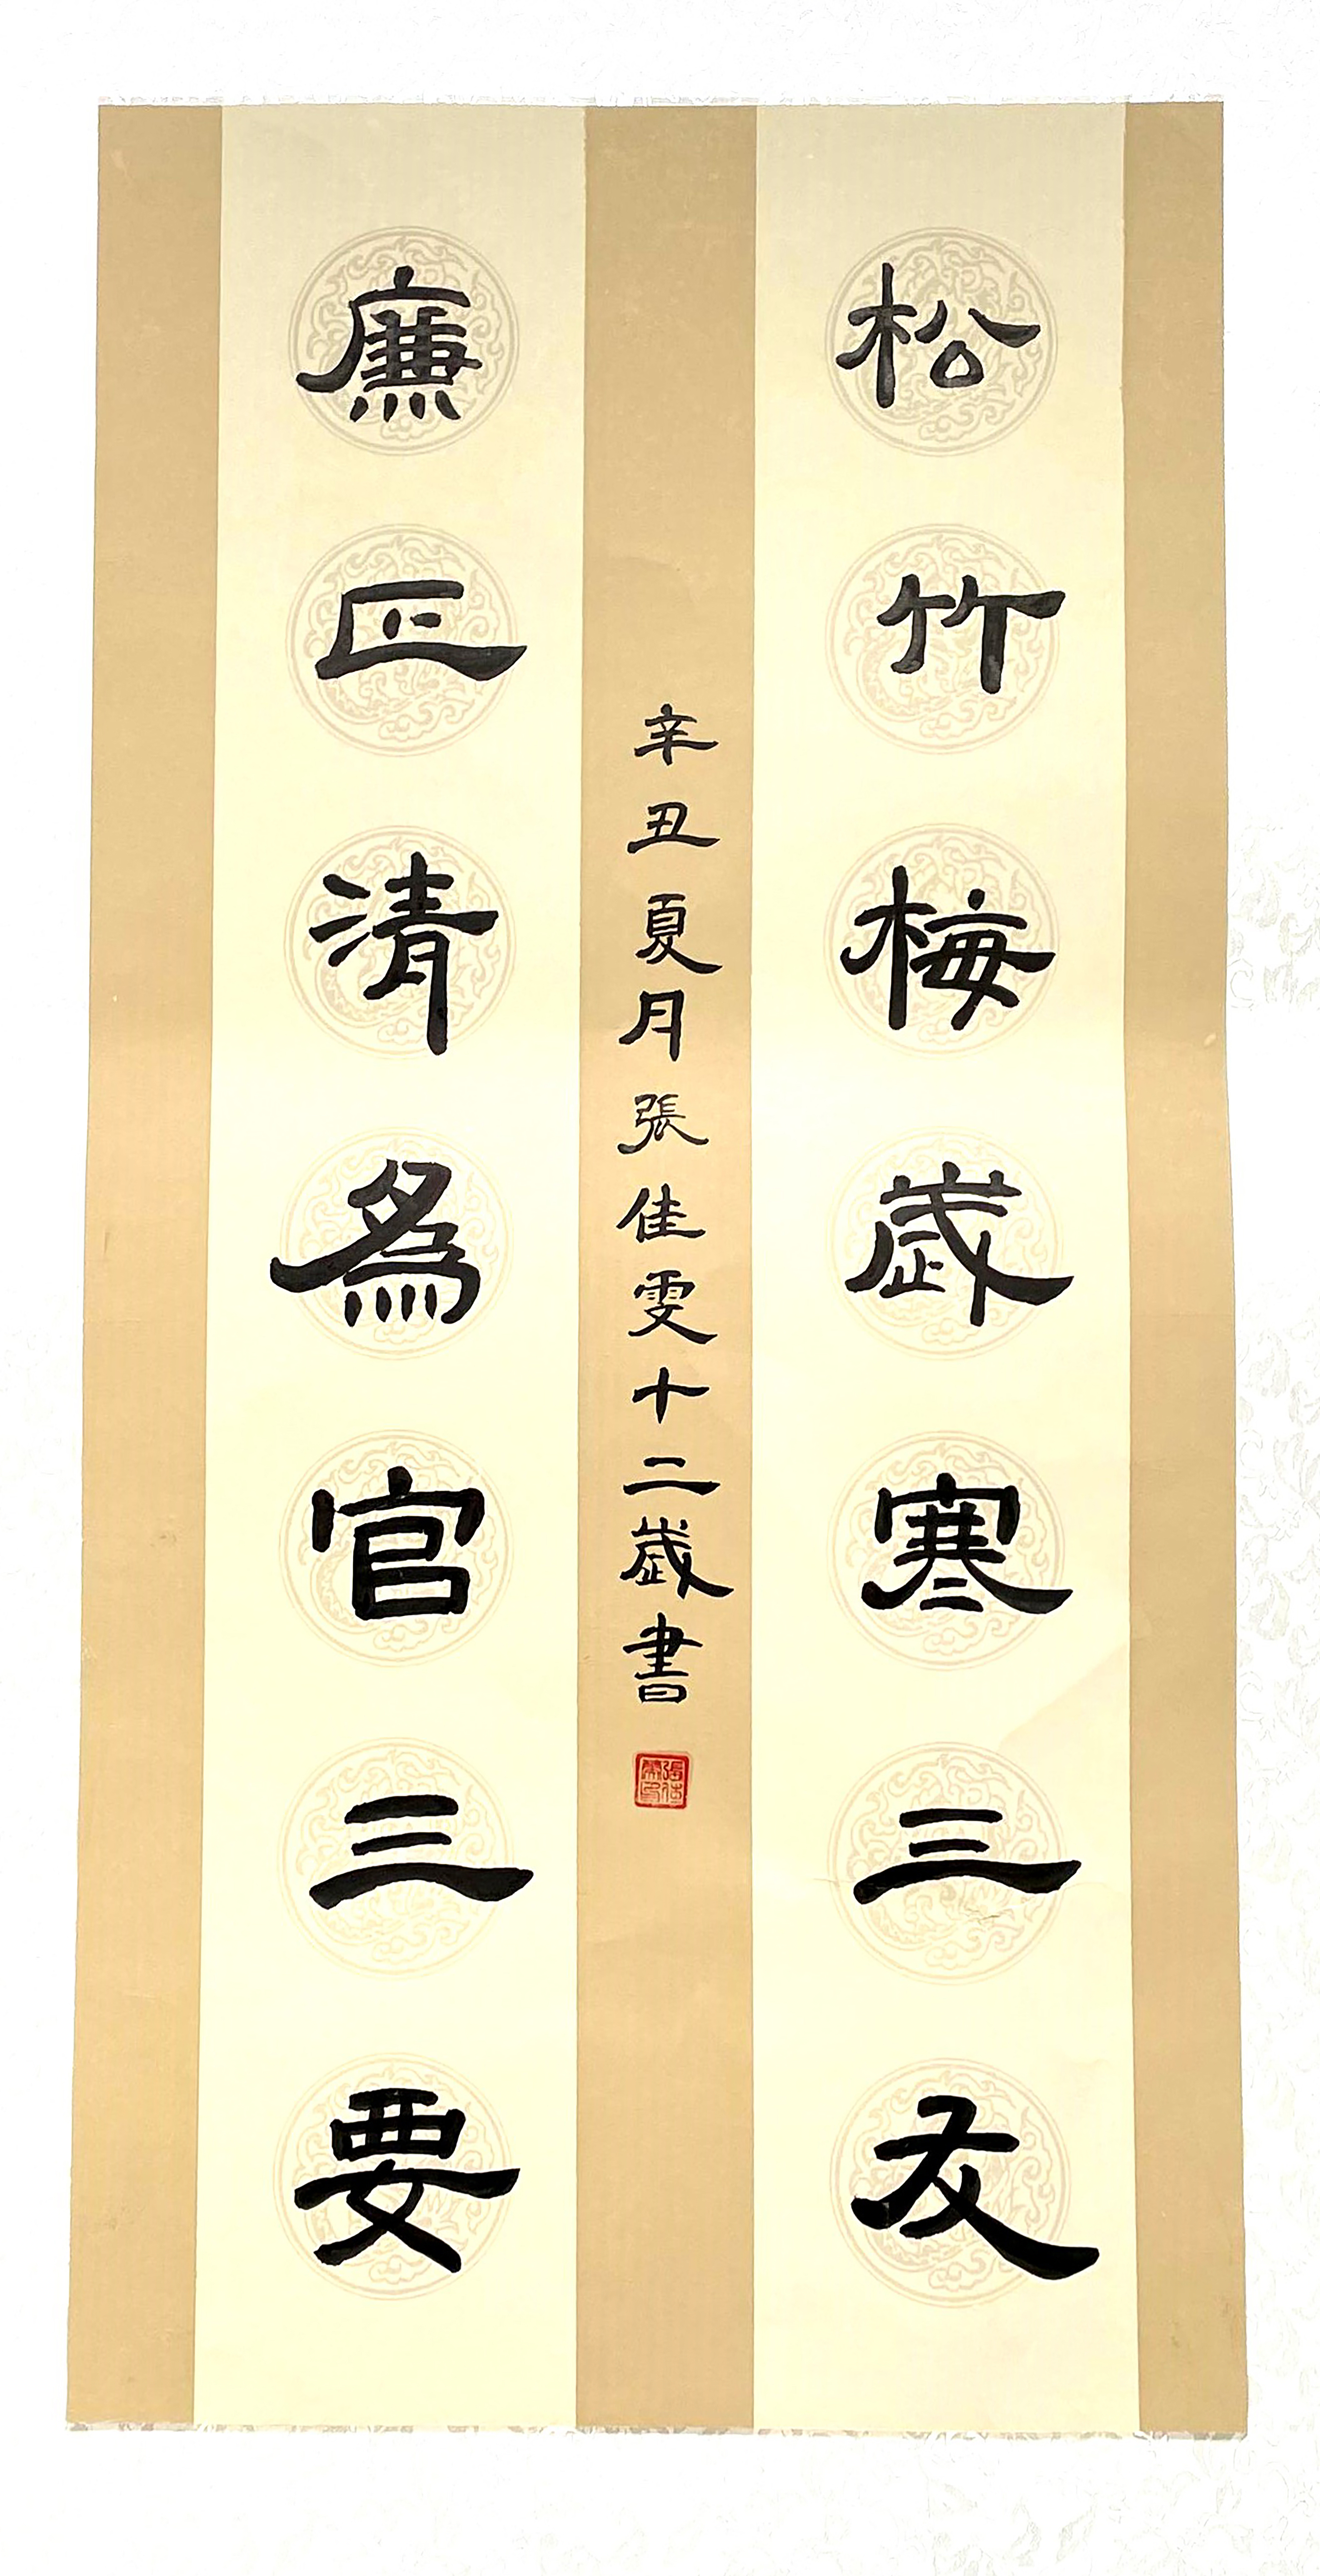 松竹梅歲寒三友
廉正清為官三要
辛丑夏月張佳雯十二歲書
張佳雯印